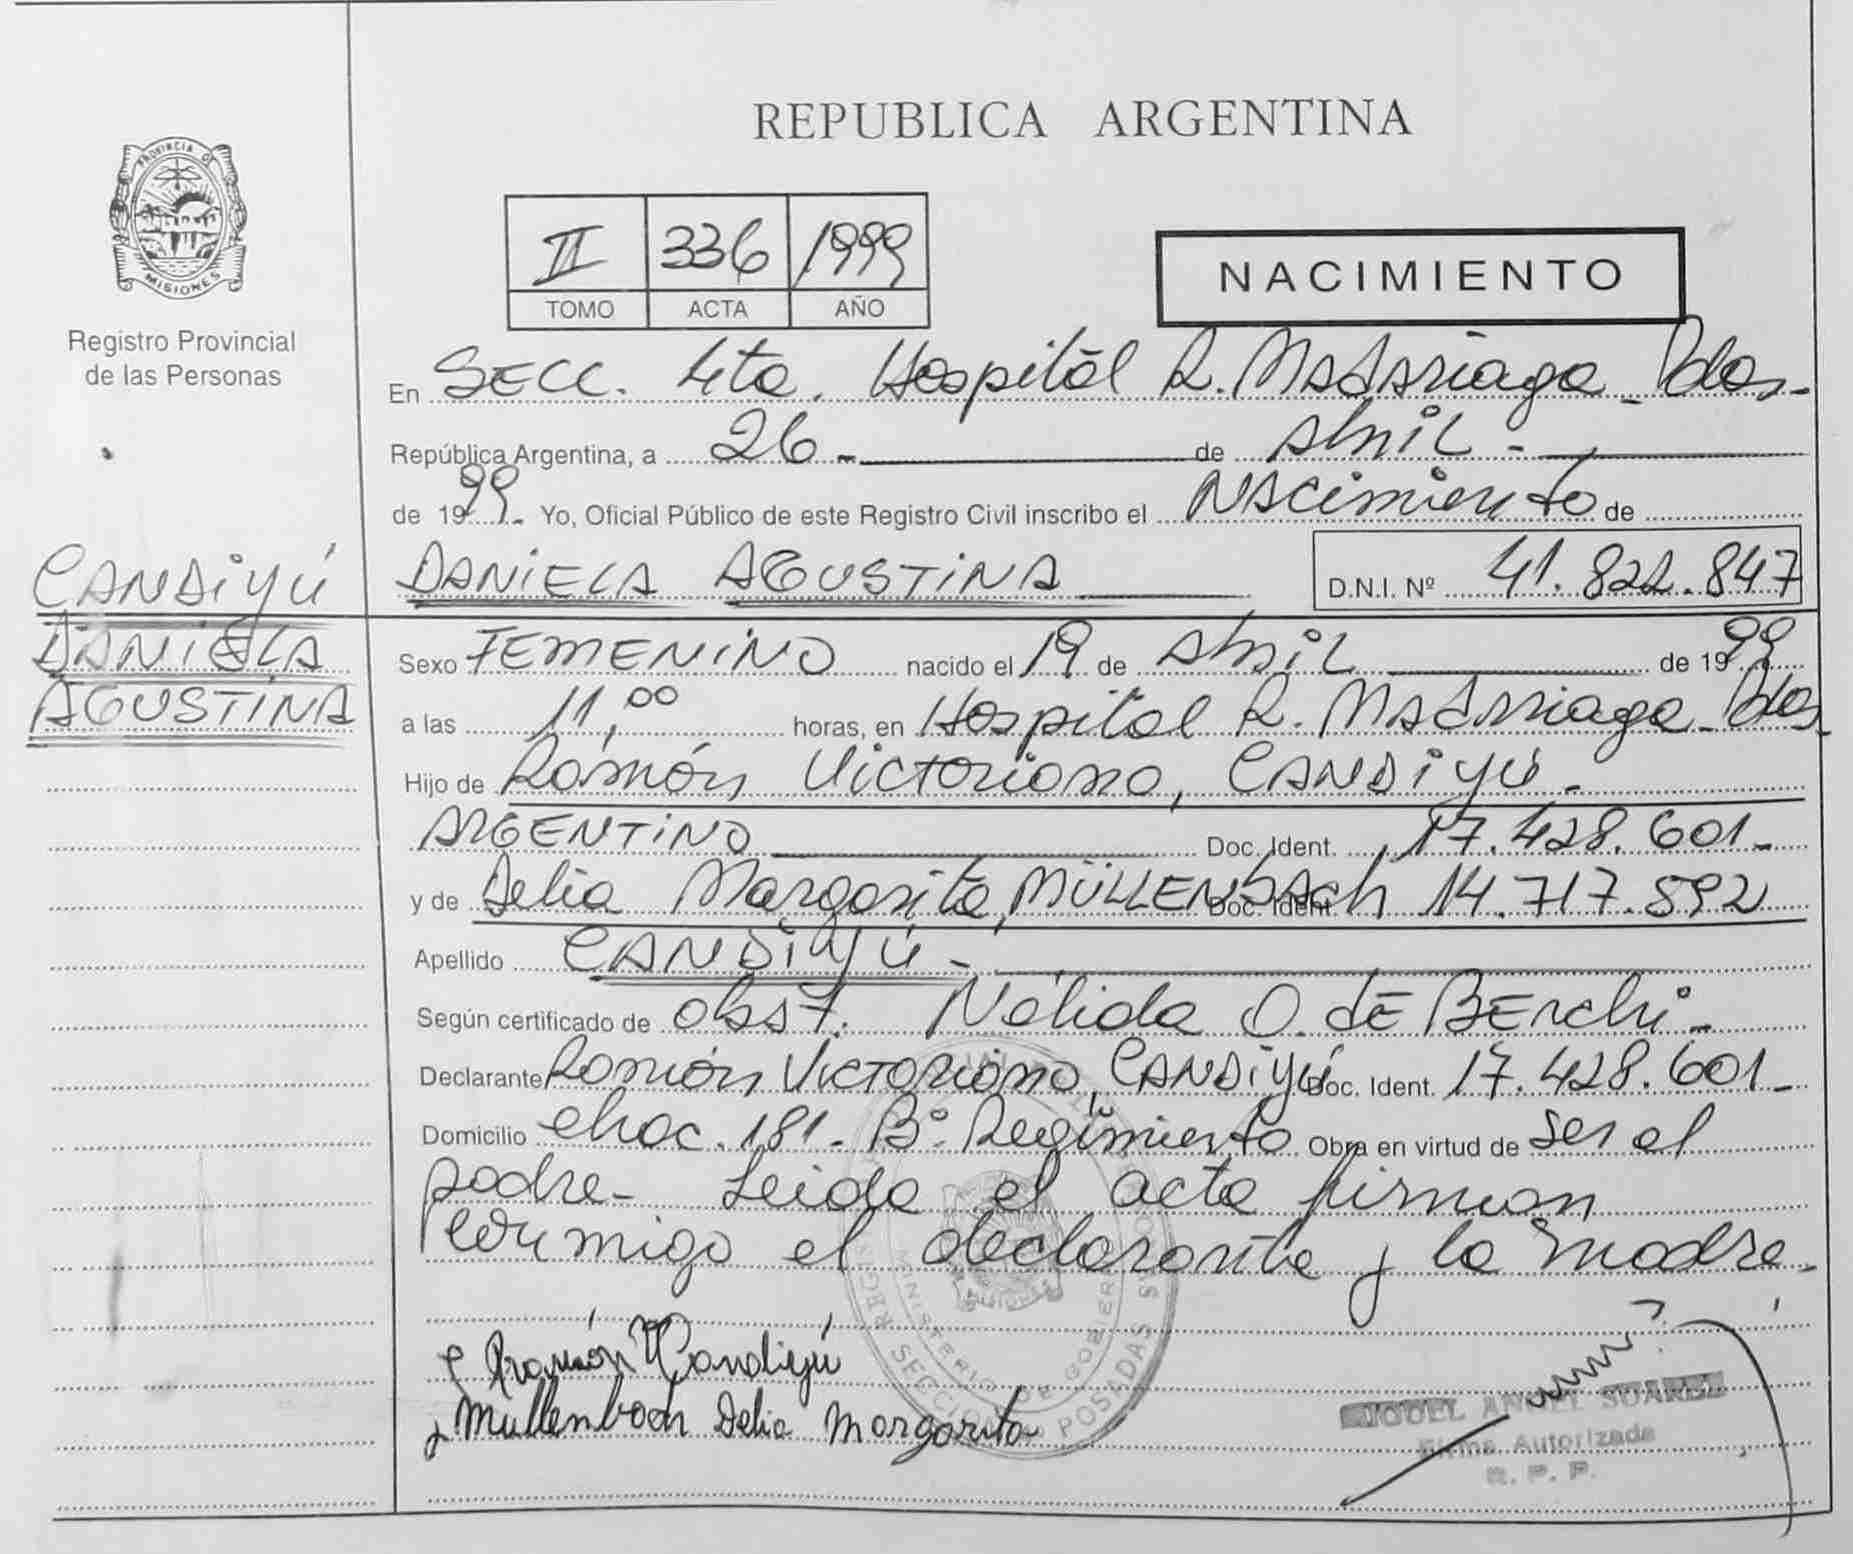 REPUBLICA ARGENTINA
PROVINCIA DE
MISIONES
Registro Provincial
de las Personas
II 336 1999
TOMO ACTA AÑO
NACIMIENTO
En SECC. 4ta. Hospital R. Madariaga - Pdas.-
República Argentina, a 26 - de Abril -
de 1999.- Yo, Oficial Público de este Registro Civil inscribo el Nacimiento de
CANDIYÚ
DANIELA
AGUSTINA
DANIELA AGUSTINA
D.N.I. Nº 41.822.847
Sexo FEMENINO nacido el 19 de Abril de 1999
a las 11,00 horas, en Hospital R. Madariaga - Pdas.
Hijo de Ramón Victoriano, CANDIYÚ -
ARGENTINO Doc. Ident. 17.428.601-
y de Delia Margarita, MÜLLENBACh Doc. Ident. 14.717.592
Apellido CANDIYÚ -
Según certificado de obst. Nélida O. de
Declarante Ramón Victoriano, CANDIYÚ Doc. Ident. 17.428.601-
Domicilio chac. 181- Bº. Regimiento Obra en virtud de ser el
padre- Leida el acta firman
conmigo el declarante y la madre-
Ramón V Candiyú
Mullenbach Delia Margarita
MINISTERIO DE GOBIERNO
POSADAS
MIGUEL ANGEL SUAREZ
Firma Autorizada
R. P. P.